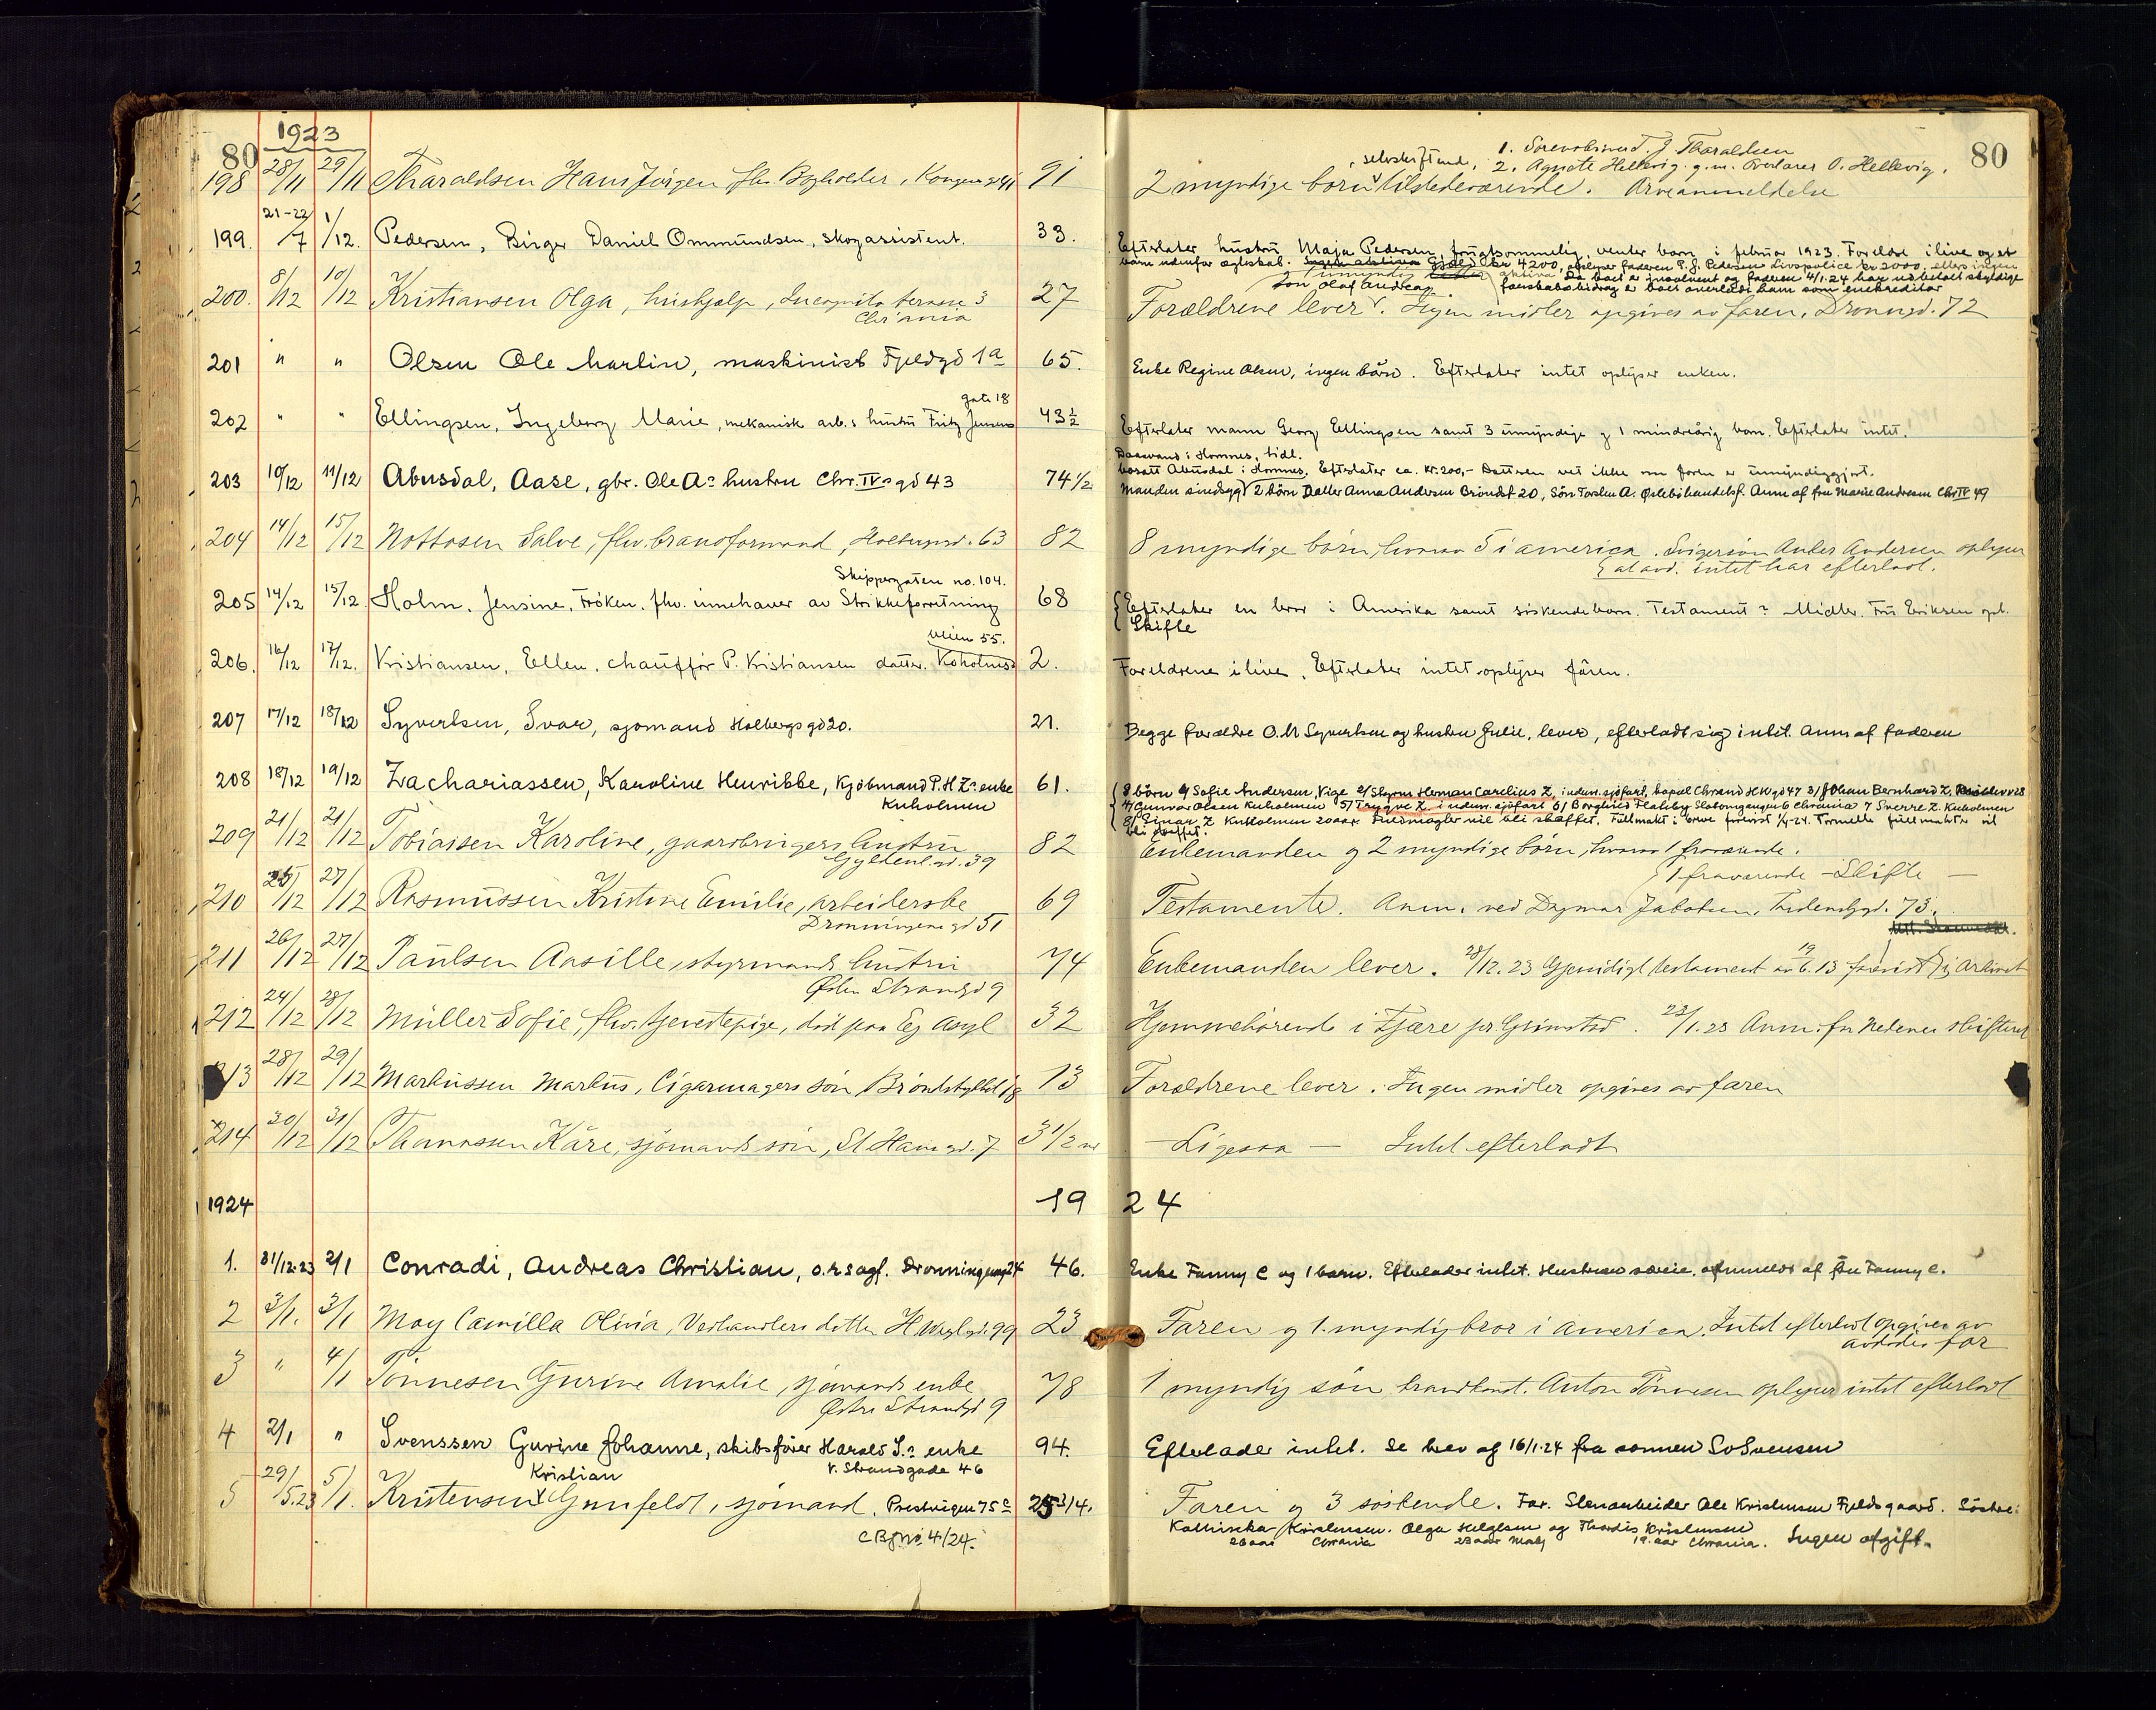 80 1923 80
198 28/11 29/11 Tharaldsen Hans Jörgen fhv. Byfoleder, Kongensgd 41 91 2 myndige børn tilstedeværende. Arveanmeldelse
, selvskiftend. 1. T. J. Tharaldsen
2. Agnete Hellevig g.m. Overlærer O. Hellevig.
199. 21-22/7 1/12. Pedersen, Birger Daniel Ommundsen, skogassistent. 33. Efterlater hustru Maja Pedersen frugtsommelig, venter barn i februar 1923. Foreldre ilive og et
barn udenfor egteskab. Gjæld kr 4200, oplyser faderen P. J. Pedersen Livspolice kr 2000 ellers ingen
aktiva Da boet er insolvent og faderen 4/1-24 har
200. 8/12 10/12 Kristiansen Olga, hushjælp, Incognito terrasse 3 27 Forældrene lever. Ingen midler opgives av faren. Dronngd. 72
Chr'ania
og umyndig
søn Olaf Andreas.
201 " " Olsen Ole Martin, maskinist Fjeldgd 1a 65. Enke Regine Olsen, ingen børn. Efterlater intet oplyser enken.
gate 18
202 " " Ellingsen, Ingeborg Marie, mekanisk arb.s hustru Fritz Jensens 43 1/2 Efterlater mann Georg Ellingsen samt 3 umyndige og 1 mindreårig barn. Efterlater intet.
Daasvand i Homnes, tidl.
bosatt Abusdal i Homnes. Efterlater ca. kr. 200,- Datteren vet ikke om faren er umyndiggjort.
203 10/12 11/12 Abusdal, Aase, gbr. Ole A's hustru Chr. IVs gd 43 74 1/2 Manden sindsyg 2 börn Datter Anna Andersen Bröndst 20, Sön Torsten A. Anm af fru Marie Andresen Chr IV 49
204 14/12 15/12 Nottosen Salve, fhv. brandformand, Holbergsgd. 63 82 8 myndige börn, hvorav 5 i america. Svigersön Anker Andersen oplyser
at avd. intet har efterladt.
Skippergaten no. 104.
205 14/12 15/12 Holm, Jensine, Fröken. fhv. innehaver av Strikkeforretning 68 Efterlater en bror i Amerika samt söskendebarn. Testament? Midler. Fru Eriksen opl.
Skifte
veien 55.
206. 16/12 17/12. Kristiansen, Ellen, chaufför P. Kristiansen datter. Koholms 2. Foreldrene ilive. Efterlater intet oplyser faren.
207 17/12 18/12 Syvertsen, Ivar, sjømand Holbergs gd 20. 21. Begge forældre O. M Syvertsen og hustru Julie, lever, efterladt sig intet. Anm af faderen
208 18/12 19/12 Zachariassen, Karoline Henrikke, Kjöbmand P. H Z's enke 61. 8 börn 1/ Sofie Andersen, Vige 2/ Styrm Herman Carelius Z, i udenr. sjöfart, bopæl Chrsand H W gd 47 3/ Johan Bernhard Z,
Kuholmen
4/ Gunvor Olsen Kuholmen 5/ Trygve Z. i udenr. sjöfart 6/ Borghild Flateby Slotsengangen 6 Chrania 7 Sverre Z. Kuholmen
8/ Einar Z Kuholmen 20 aar. Fuldmagter vil bli skaffet.
bli skaffet.
209 21/12 21/12 Tobiassen Karoline, gaardbrugers hustru 82 Enkemanden og 2 myndige børn, hvorav 1 fraværende.
Gyldenl. gd. 39
1 fraværende – Skifte –
210 25/12 27/12 Rasmussen Kristine Emilie, arbeiderske 69 Testamente. Anm. ved Dagmar Jakobsen, 73.
Dronningens gd 51
211 26/12 27/12 Paulsen Aasille, styrmands hustru 74 Enkemanden lever. 28/12.23 Gjensidigt testament av 19/6.13 i arkivet
Østre Strandgd 9
212 24/12 28/12 Müller Sofie, fhv. tjenestepige, död paa Eg Asyl 32 Hjemmehörende i Fjære pr. Grimstad. 23/1.23 Anm. fra Nedenes skifteret
213 28/12 29/12 Markussen Markus, Cigarmagers sön 13 Forældrene lever. Ingen midler opgives av faren
214 30/12 31/12 Thomassen Kåre, sjömands sön, St Hans gd. 7 3 1/2 – Ligesaa – Intet efterladt
1924 19 24
1. 31/12.23 2/1 Conradi, Andreas Christian, o.r sagf. Dronningensgt 24 46. Enke Fanny C og 1 barn. Efterlader intet. Hustrus særeie. anmeldt af fru Fanny C.
2 3/1. 3/1 Moy Camilla Olivia, Vedhandlers datter H Wergl. gd. 99 23 Faren og 1. myndig bror i america. Intet efterladt opgives av
avdödes far
3 " 4/1 Tönnesen Gurine Amalie, sjömands enke 78 1 myndig sön brandkonst. Anton Tönnesen oplyser intet efterladt
Østre Strandgd 9
4 2/1 " Svenssen Gurine Johanne, skibsförer Harald S's enke 94. Efterlader intet. Se brev af 16/1-24 fra sonnen Sv Svensen
V. Strandgade 46
Kristian
5 29/5.23 5/1. Kristensen Gunfeldt, sjömand. Prestvigen 75 c 25 3/4. Faren og 3 söskende. Far. Stenarbeider Ole Kristensen Fjeldsgaard. Söstre:
Kathinka Kristensen. Olga Helgesen og Thordis Kristensen Ingen afgift.
26 aar Chrania 23 aar 19. aar Chrania.
4/24.